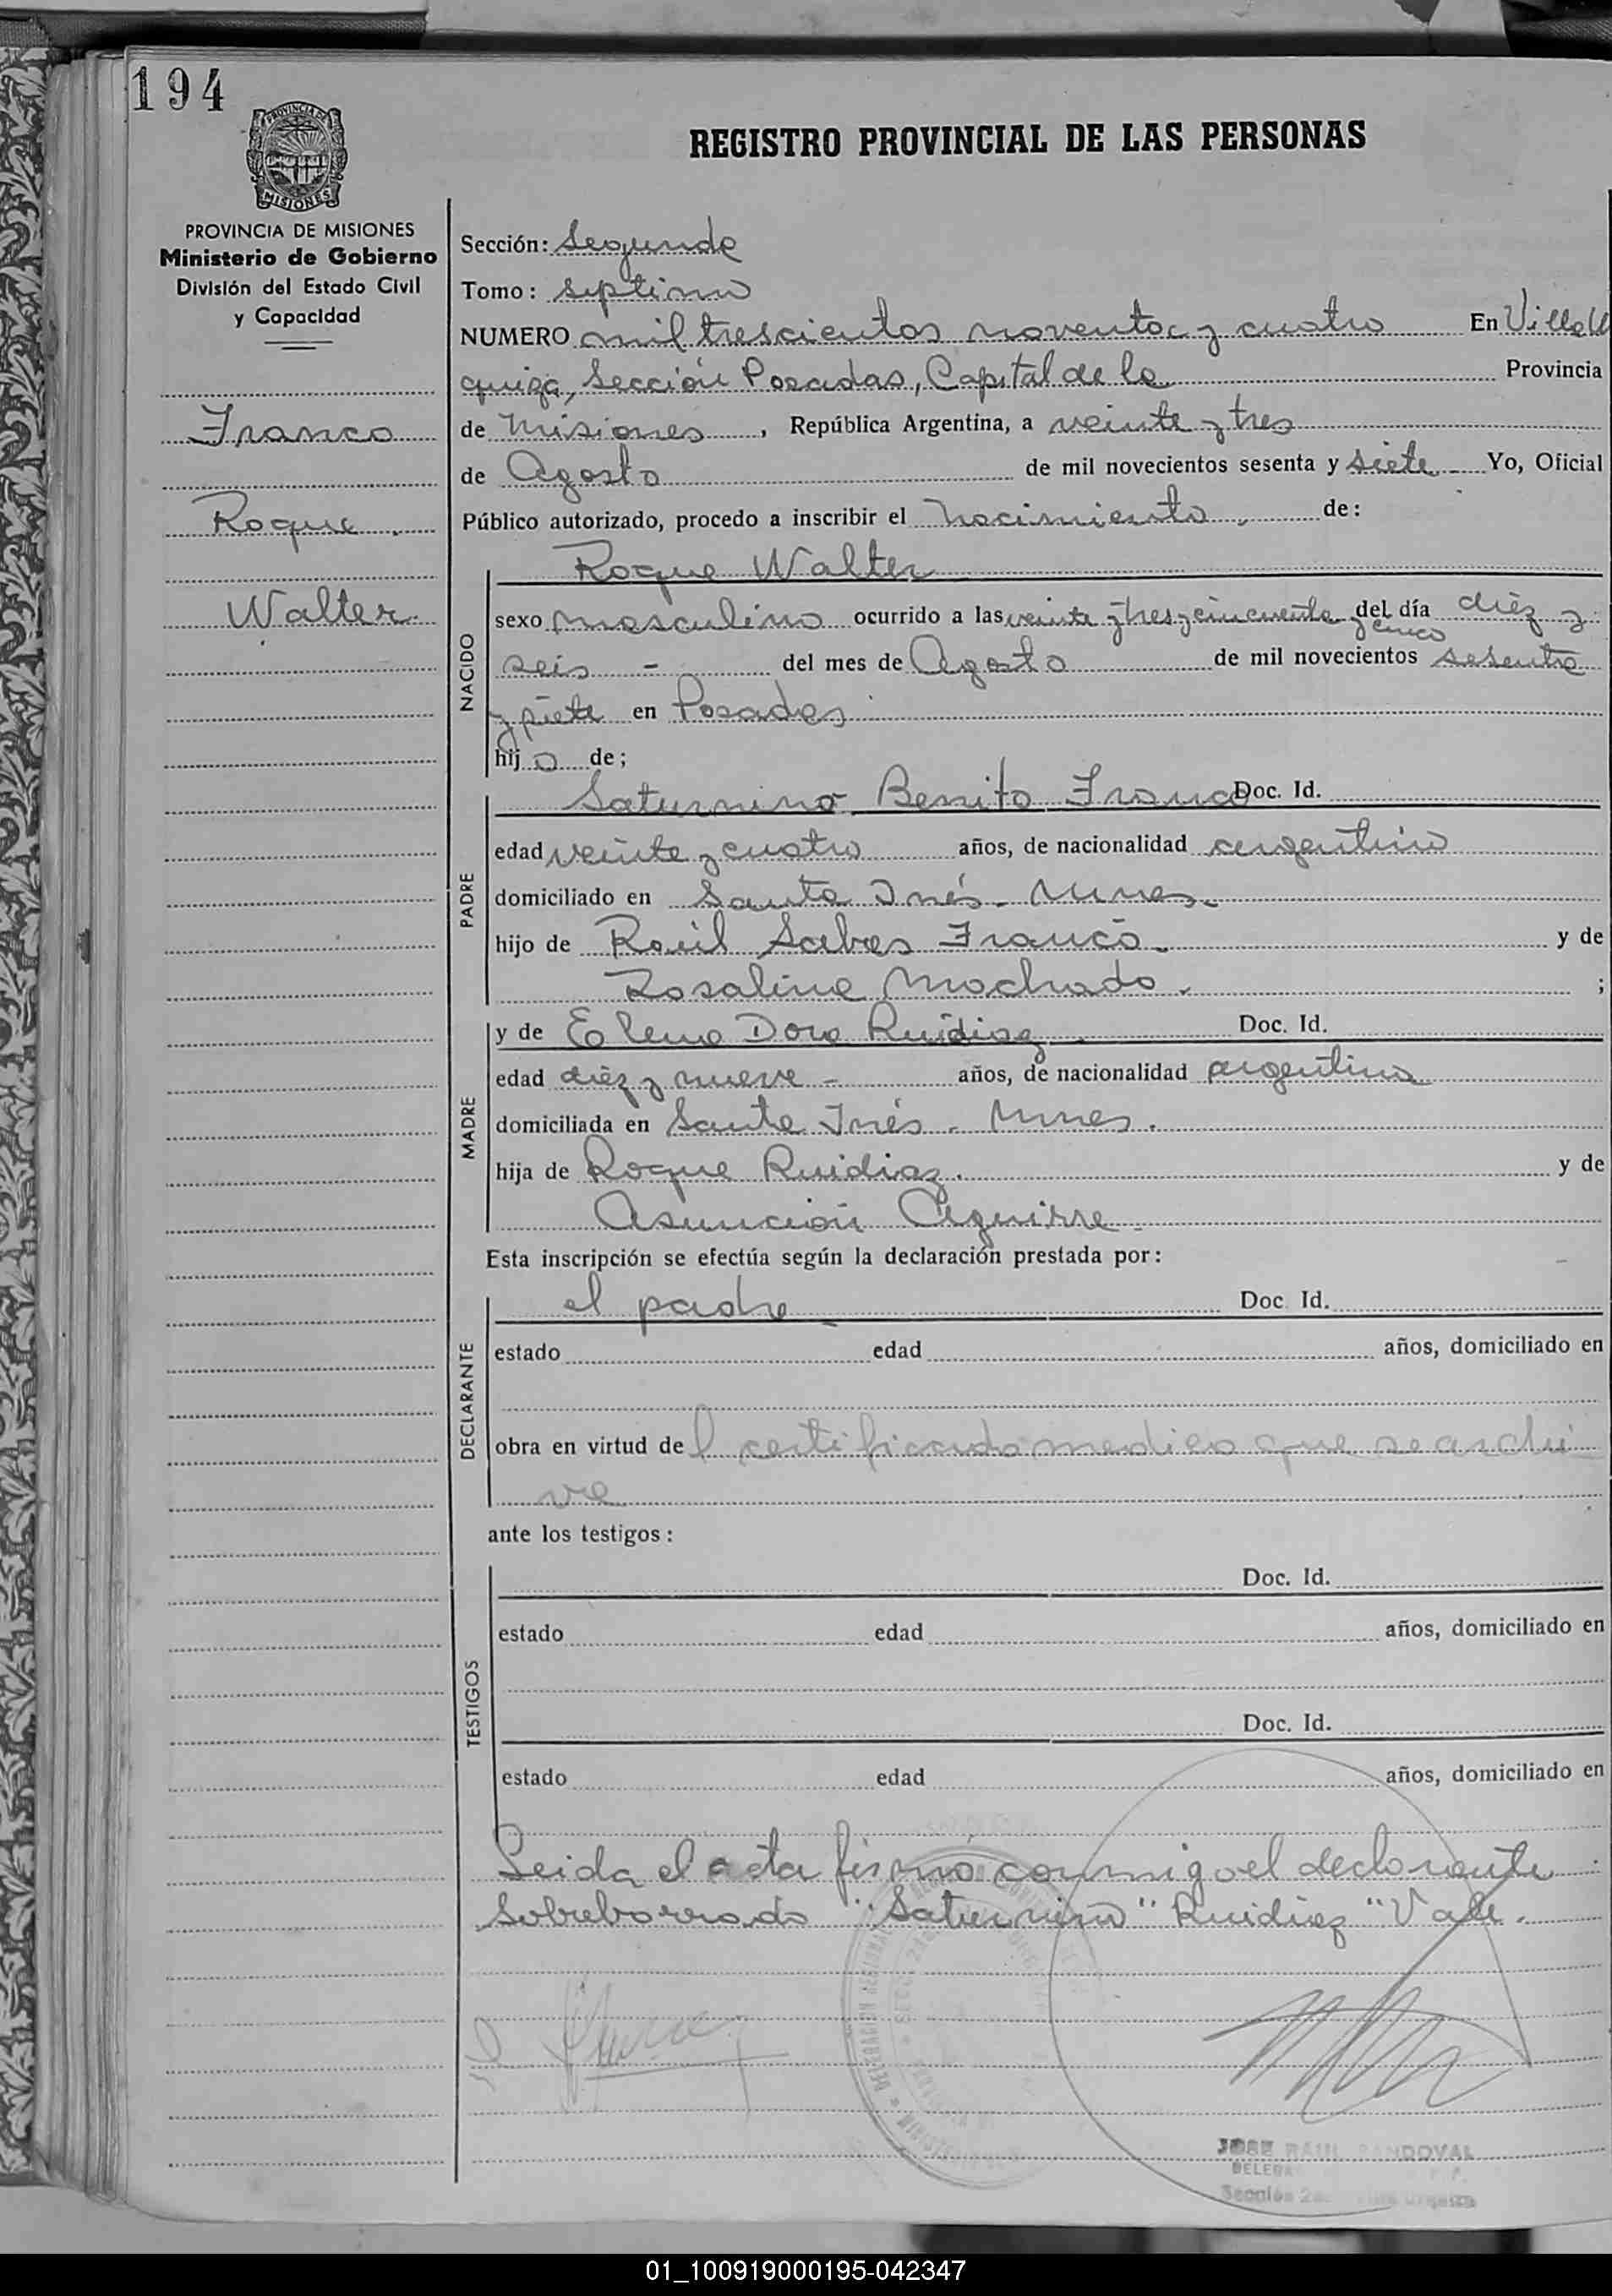 194
PROVINCIA DE
MISIONES
REGISTRO PROVINCIAL DE LAS PERSONAS
PROVINCIA DE MISIONES
Ministerio de Gobierno
División del Estado Civil
y Capacidad
Franco
Roque
Walter.
Sección: Segunda
Tomo: septimo
NUMERO mil trescientos noventa y cuatro En Villa U
quiza, Sección Posadas, Capital de la Provincia
de Misiones, República Argentina, a veinte y tres
de Agosto de mil novecientos sesenta y siete Yo, Oficial
Público autorizado, procedo a inscribir el nacimiento de:
NACIDO
Roque Walter
sexo masculino ocurrido a las veinte y tres y cincuenta y cinco del día diez y
seis - del mes de Agosto de mil novecientos sesenta
y siete en Posadas
hijo de;
PADRE
Saturnino Benito Franco Doc. Id.
edad veinte y cuatro años, de nacionalidad argentino
domiciliado en Santa Inés - Mnes.
hijo de Raúl Franco. y de
Rosalina Machado. ;
MADRE
y de Elena Dora Ruidiaz. Doc. Id.
edad diez y nueve - años, de nacionalidad argentina
domiciliada en Santa Inés - Mnes.
hija de Roque Ruidiaz. y de
Asunción Aguirre
Esta inscripción se efectúa según la declaración prestada por:
DECLARANTE
el padre Doc. Id.
estado edad años, domiciliado en
obra en virtud del certificado medico que se archi
va
ante los testigos:
TESTIGOS
Doc. Id.
estado edad años, domiciliado en
Doc. Id.
estado edad años, domiciliado en
Leida el acta firmó conmigo el declarante
Sobreborrado "Saturnino" Ruidiaz "Vale.
JOSE RAUL SANDOVAL
01_100919000195-042347